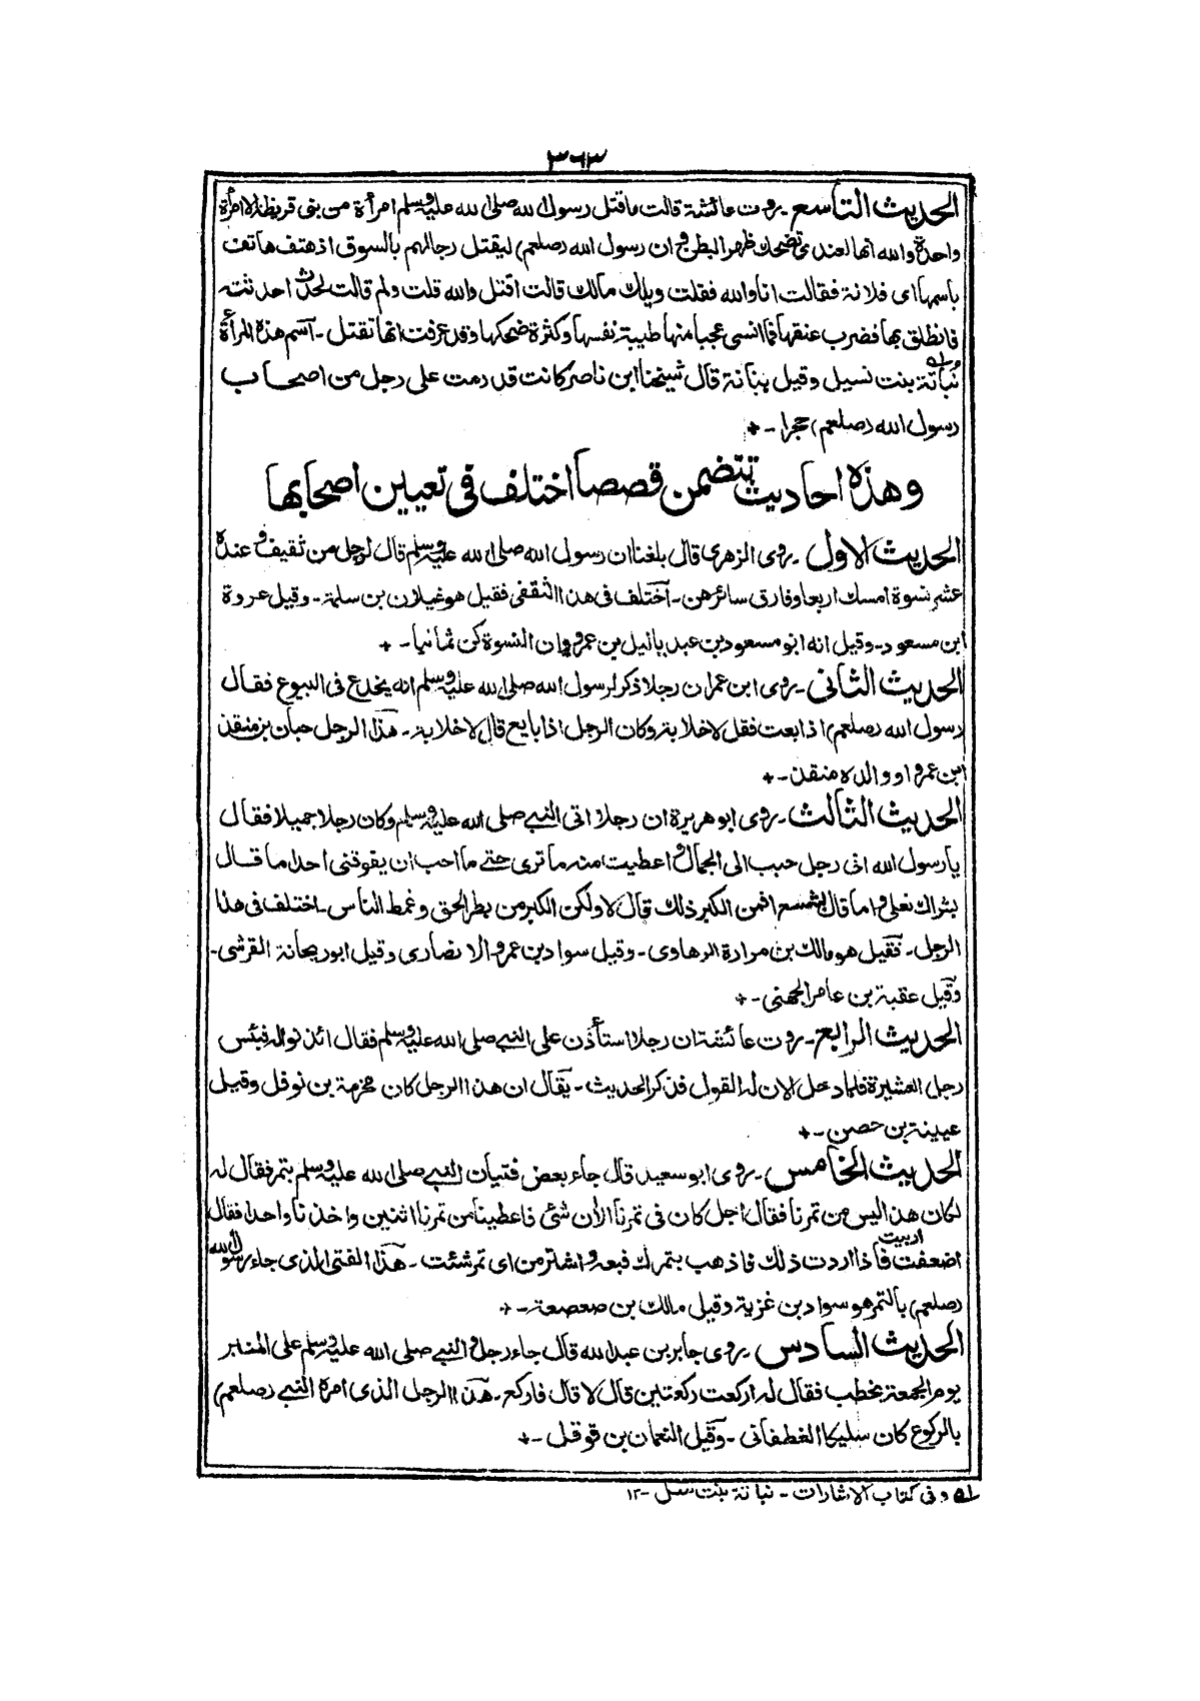 ٣٦٣
الحديث التاسع ـ روت عائشة قالت ما قتل رسول الله صلى الله عليه وسلم امرأة من بنى قريظة الا امرأة
واحدة والله انها لعندى تضحك ظهر البطن وان رسول الله (صلعم) ليقتل رجالهم بالسوق اذ هتف هاتف
باسمها اى فلانة فقالت انا والله فقلت ويلك مالك قالت اقتل والله قلت ولم قالت لحدث احدثته
فانطلق بها فضرب عنقها فما انسى عجبا منها طيبة نفسها وكثرة ضحكها وقد عرفت انها تقتل ـ آسم هذه المرأة
نُباتة بنت نسيل وقيل بنانة قال شيخنا ابن ناصر كانت قد رمت على رجل من اصحاب
رسول الله (صلعم) حجرا ـ +
وهذه احاديث تتضمن قصصا اختلف فى تعيين اصحابها
الحديث الاول ـ روى الزهرى قال بلغنا ان رسول الله صلى الله عليه وسلم قال لرجل من ثقيف وعنده
عشر نسوة امسك اربعا وفارق سائرهن ـ آختلف فى هذا الثقفى فقيل هو غيلان بن سلمة ـ وقيل عروة
ابن مسعود ـ وقيل انه ابو مسعود بن عبد ياليل بن عمرو وان النسوة كن ثمانيا ـ +
الحديث الثانى ـ روى ابن عمر ان رجلا ذكر لرسول الله صلى الله عليه وسلم انه يخدع فى البيوع فقال
رسول الله (صلعم) اذا بعت فقل لا خلابة وكان الرجل اذا بايع قال لا خلابة ـ هذا الرجل حبان بن منقذ
ابن عمرو او والده منقذ ـ +
الحديث الثالث ـ روى ابو هريرة ان رجلا اتى النبي صلى الله عليه وسلم وكان رجلا جميلا فقال
يا رسول الله انى رجل حبب الى الجمال واعطيت منه ما ترى حتے ما احب ان يفوقنى احد اما قال
بشراك نعلى واما قال بشسع افمن الكبر ذلك قال لا ولكن الكبر من بطر الحق وغمط الناس ـ اختلف فى هذا
الرجل ـ فقيل هو مالك بن مرارة الرهاوى ـ وقيل سواد بن عمرو الانصارى وقيل ابو ريحانة القرشى ـ
وقيل عقبة بن عامر الجهنى ـ +
الحديث الرابع ـ روت عائشة ان رجلا استأذن على النبي صلى الله عليه وسلم فقال ائذنوا له فبئس
رجل العشيرة فلما دخل الان له القول فذكر الحديث ـ يقال ان هذا الرجل كان مخرمة بن نوفل وقيل
عيينة بن حصن ـ +
الحديث الخامس ـ روى ابو سعيد قال جاء بعض فتيان النبي صلى الله عليه وسلم بتمر فقال له
لكان هذا ليس من تمرنا فقال اجل كان فى تمرنا الأن شئى فاعطينا من تمرنا اثنين واخذنا واحدا فقال
اربيت
اضعفت فاذا اردت ذلك فاذهب بتمرك فبعه واشتر من اى تمر شئت ـ هذا الفتى الذى جاء رسول الله
(صلعم) بالتمر هو سواد بن غزية وقيل مالك بن صعصعة ـ +
الحديث السادس ـ روى جابر بن عبد الله قال جاء رجل والنبي صلى الله عليه وسلم على المنبر
يوم الجمعة يخطب فقال له اركعت ركعتين قال لا قال فاركع ـ هذا الرجل الذى امره النبي (صلعم)
بالركوع كان سليكا الغطفانى ـ وقيل النعمان بن قوقل ـ +
له وفى كتاب الاشارات ـ نباتة بنت سل ـ ١٢